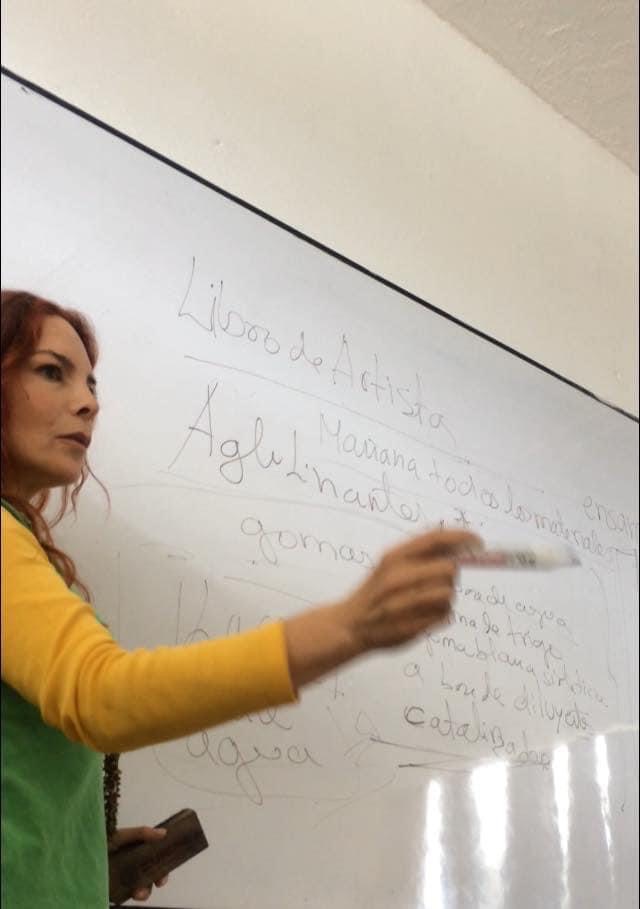 Libro de Artista
Mañana todos los materiales
Aglutinantes
gomas
de agua
de trigo
blanca sintética
a base de diluyente
catalizador
agua